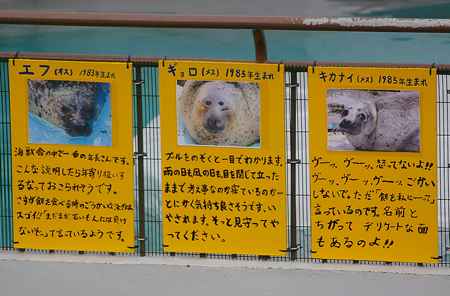 エフ(オス) 1983年生まれ
海獣舎の中で一番の年長さんです。
こんな説明したら年寄り扱いす
るなっておこられそうです。
さすが餌を食べる時の
スゴイ!!「まだまだ若いもんには負け
ない」って言っているようです。
ギョロ(メス) 1985年生まれ
プールをのぞくと一目でわかります。
雨の日も風の日も目を閉じて立った
ままで考え事なのか寝ているのか…
とにかく気持ち良さそうです。い
やされます。そっと見守ってや
ってください。
キカナイ(メス) 1985年生まれ
ヴーッ、ヴーッ、怒ってないよ!!
ヴーッ、ヴーッ、ヴーッ。ごかい
しないで。ただ「餌を私にーって
言っているのです。名前と
ちがって デリケートな面
もあるのよ!!